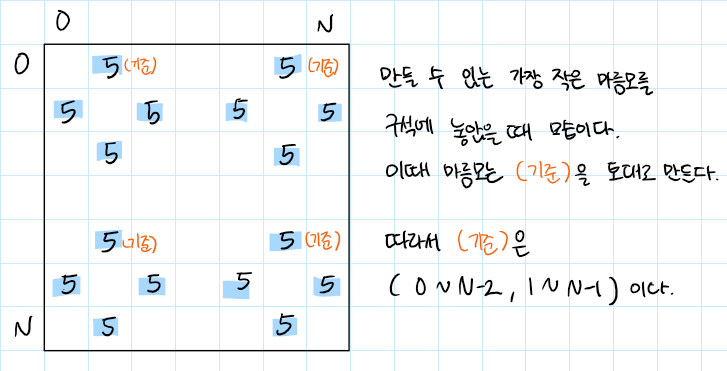 0 N
0 5 (기준) 5 (기준)
5 5 5 5
5 5
5 (기준) 5 (기준)
5 5 5 5
N 5 5
만들 수 있는 가장 작은 마름모를
구석에 놓았을 때 모습이다.
이때 마름모는 (기준)을 토대로 만든다.
따라서 (기준)은
( 0 ~ N-2 , 1 ~ N-1 ) 이다.